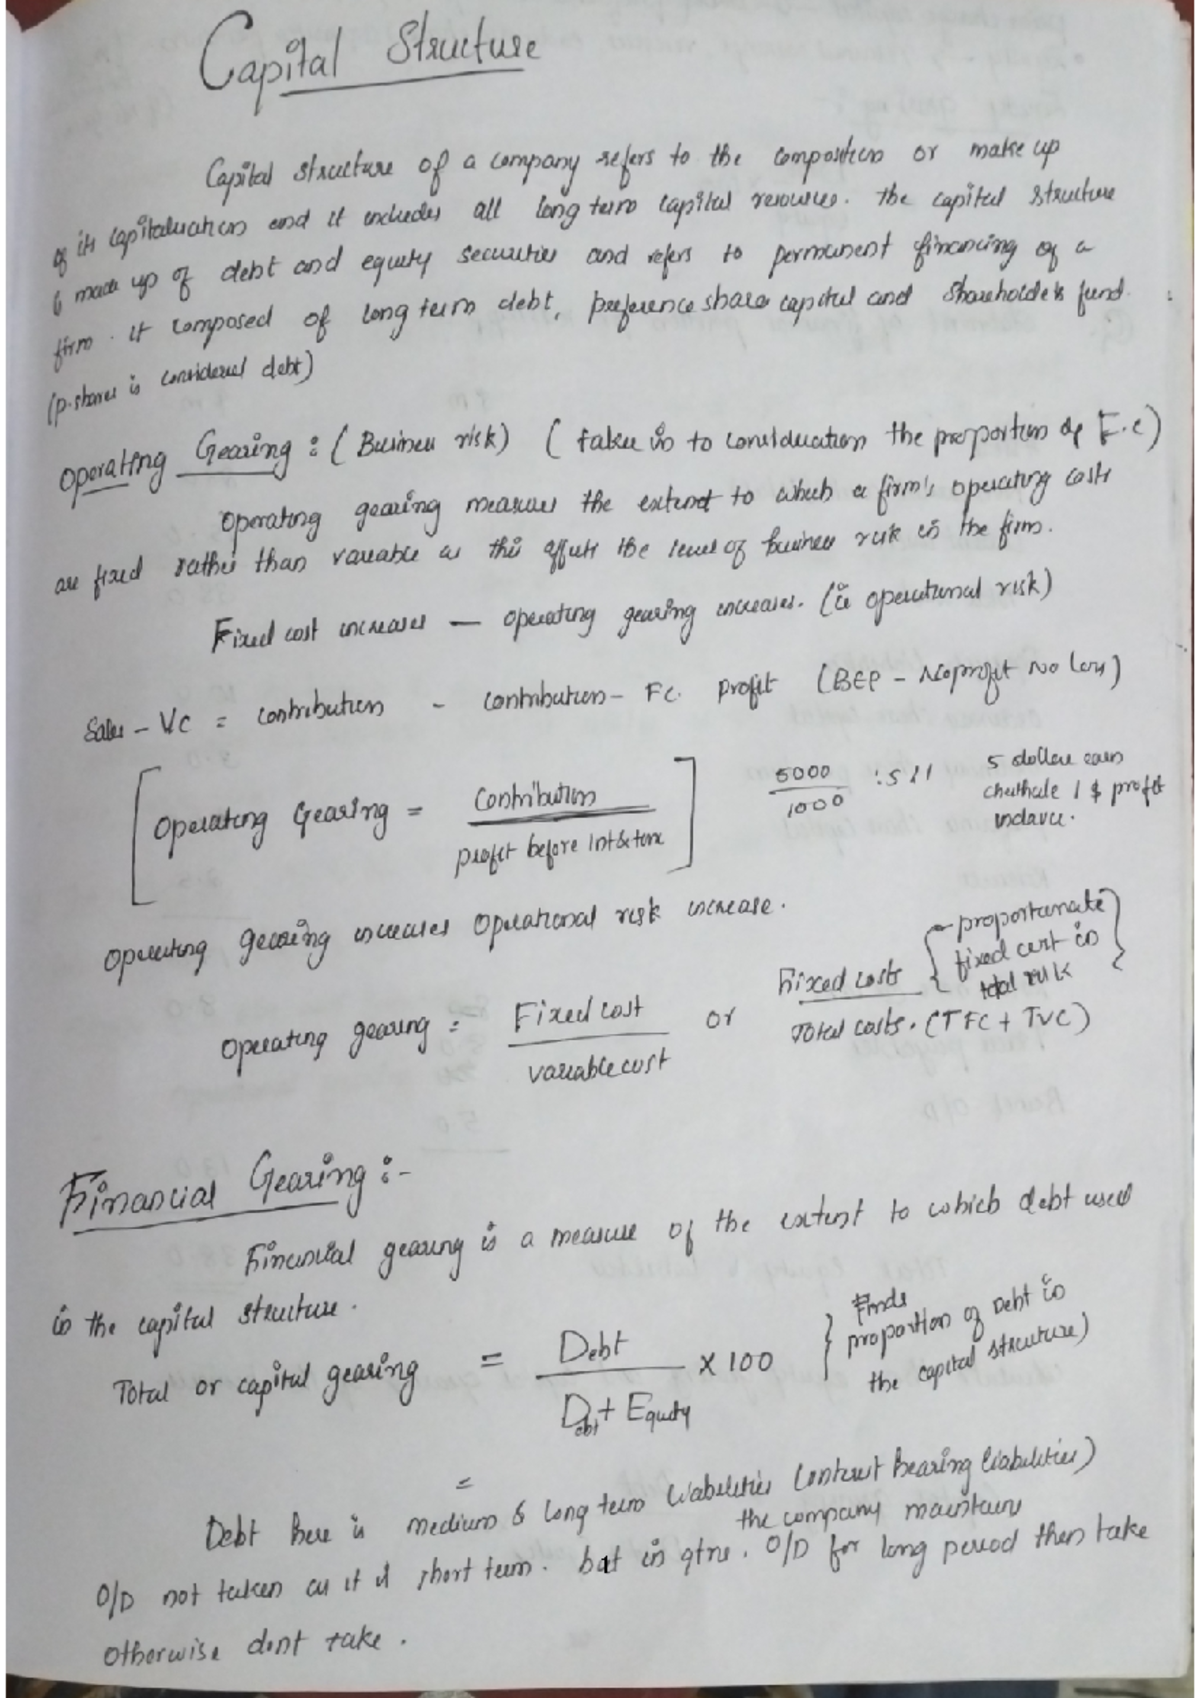 Capital Structure
Capital structure of a company refers to the composition or make up
of its capitalization and it includes all long term capital resources. the capital structure
is made up of debt and equity securities and refers to permanent financing of a
firm. it composed of long term debt, preference share capital and shareholders fund.
(p.shares is considered debt)
Operating Gearing : (Business risk) ( taken in to consideration the proportion of F.C)
Operating gearing measures the extent to which a firm's operating costs
are fixed rather than variable as this affects the level of business risk in the firm.
Fixed cost increases — operating gearing increases. (ie operational risk)
Sales - VC = contribution - contribution - FC. profit (BEP - No profit No loss)
[Operating Gearing = Contribution / profit before Int & tax] 5000 / 1000 : 5 : 1 5 dollar earn
1 $ profit
operating gearing increases operational risk increase.
operating gearing = Fixed cost / variable cost or Fixed costs / Total costs. (TFC + TVC) { proportionate
fixed cost in
total risk }
Financial Gearing :-
Financial gearing is a measure of the extent to which debt used
in the capital structure.
Total or capital gearing = Debt / Debt + Equity × 100 } Finds
proportion of Debt in
the capital structure)
=
Debt here is medium & long term liabilities (interest bearing liabilities)
the company maintain
O/D not taken as it is short term. but in qtns. O/D for long period then take
otherwise dont take.